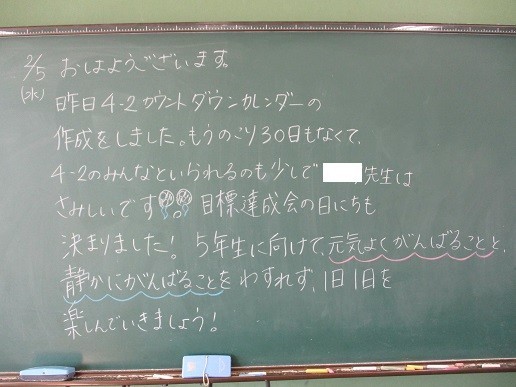 2/5 おはようございます。
(水) 昨日4-2カウントダウンカレンダーの
作成をしました。もうのこり30日もなくて、
4-2のみんなといられるのも少しで 先生は
さみしいです 目標達成会の日にちも
決まりました！ 5年生に向けて、元気よくがんばることと、
静かにがんばることをわすれず、1日1日を
楽しんでいきましょう！